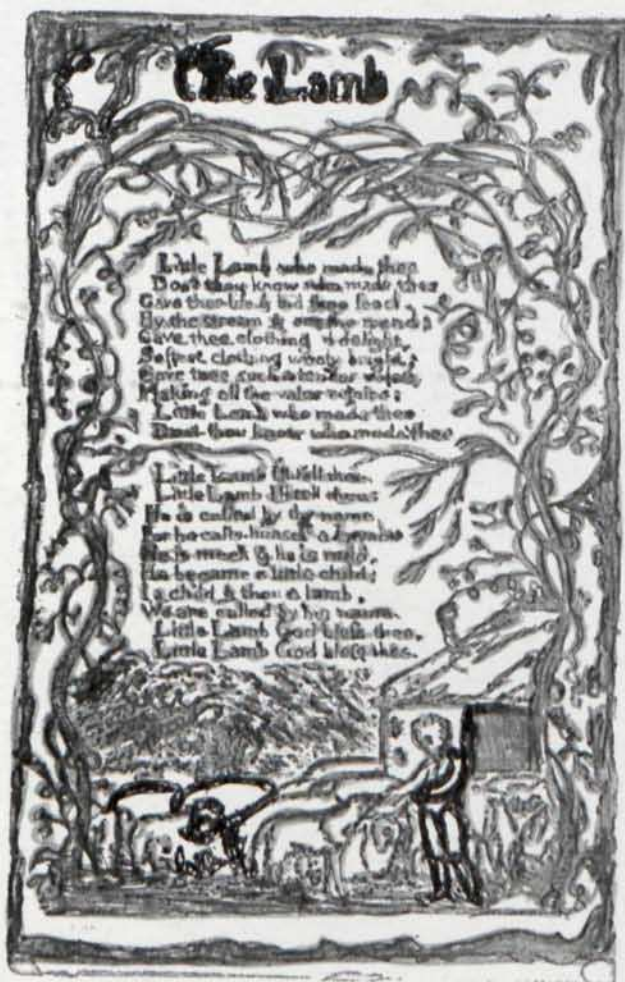 The Lamb
Little Lamb who made thee
Dost thou know who made thee
Gave thee life & bid thee feed.
By the stream & o'er the mead;
Gave thee clothing of delight,
Softest clothing wooly bright;
Gave thee such a tender voice,
Making all the vales rejoice:
Little Lamb who made thee
Dost thou know who made thee
Little Lamb I'll tell thee,
Little Lamb I'll tell thee;
He is called by thy name,
For he calls himself a Lamb:
He is meek & he is mild,
He became a little child;
I a child & thou a lamb,
We are called by his name.
Little Lamb God bless thee,
Little Lamb God bless thee.